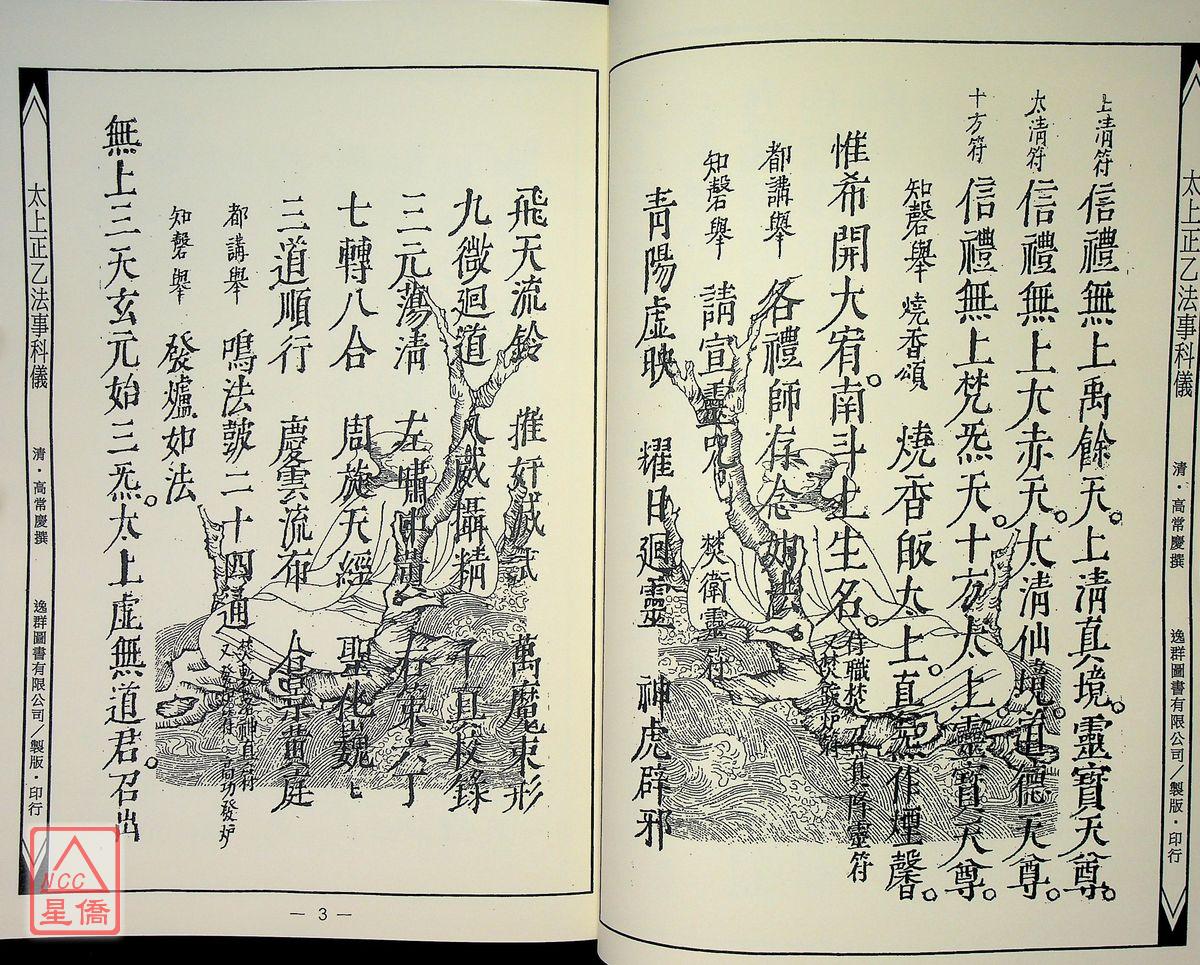 太上正乙法事科儀 清·高常慶撰 逸群圖書有限公司/製版·印行
上清符 信禮無上禹餘天。上清真境。靈寶天尊。
太清符 信禮無上大赤天。太清仙境。道德天尊。
十方符 信禮無上梵炁天。十方太上。靈寶天尊。
知磬舉 燒香頌 燒香皈太上。真炁作煙馨。
惟希開大宥。南斗上生名。侍職焚 召真降靈符
又焚發炉符
都講舉 各禮師存念如法。
知磬舉 請宣靈咒 焚衛靈符
青陽虛映 耀日廻靈 神虎辟邪
飛天流鈴 摧奸滅試 萬魔束形
九微廻道 八威攝精 千真校錄
三元蕩清 左嘯 右策六丁
七轉八合 周旋天經 聖化巍匕
三道順行 慶雲流布 黃庭
都講舉 鳴法皷二十四通 神直符
又發炉符 高功發炉
知磬舉 發爐如法
無上三天玄元始三炁。太上虛無道君。召出
太上正乙法事科儀 清·高常慶撰 逸群圖書有限公司/製版·印行
— 3 —
NCC
星僑